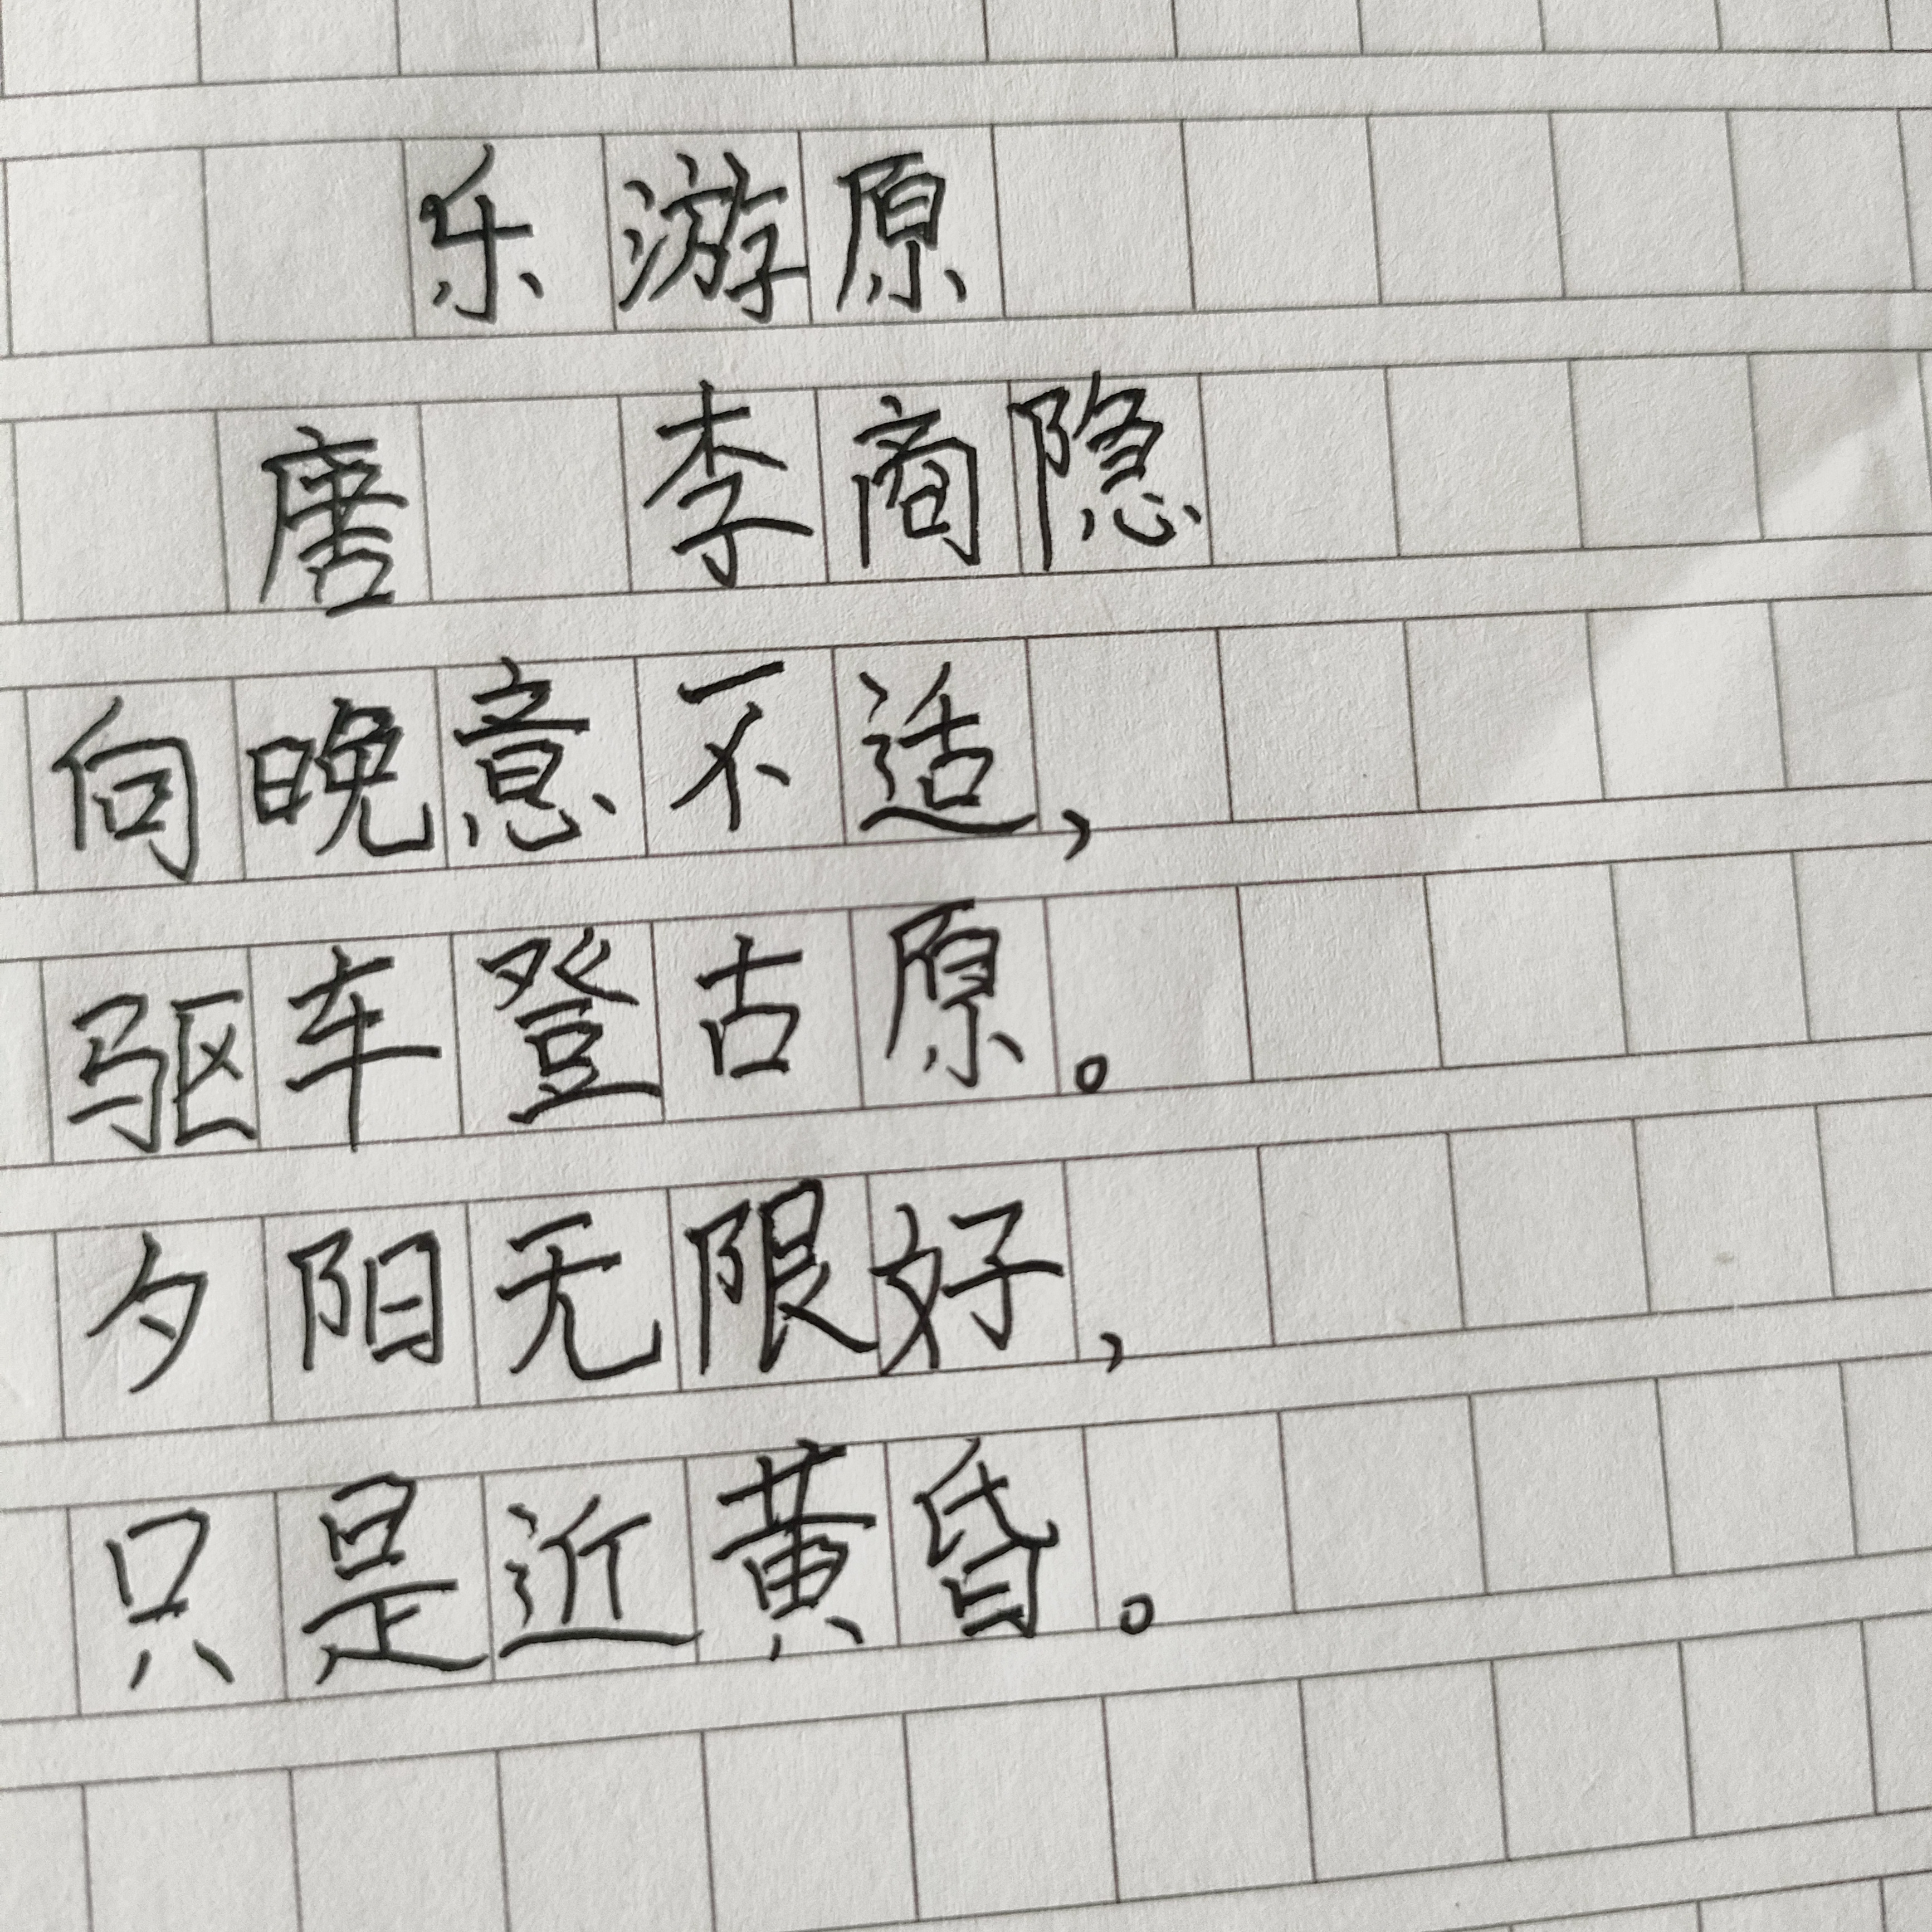 乐游原
唐 李商隐
向晚意不适，
驱车登古原。
夕阳无限好，
只是近黄昏。